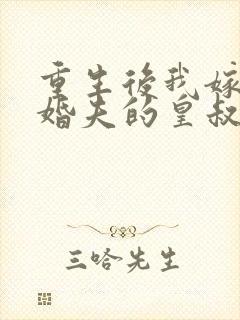 重生後我嫁
婚夫的皇叔
三哈先生